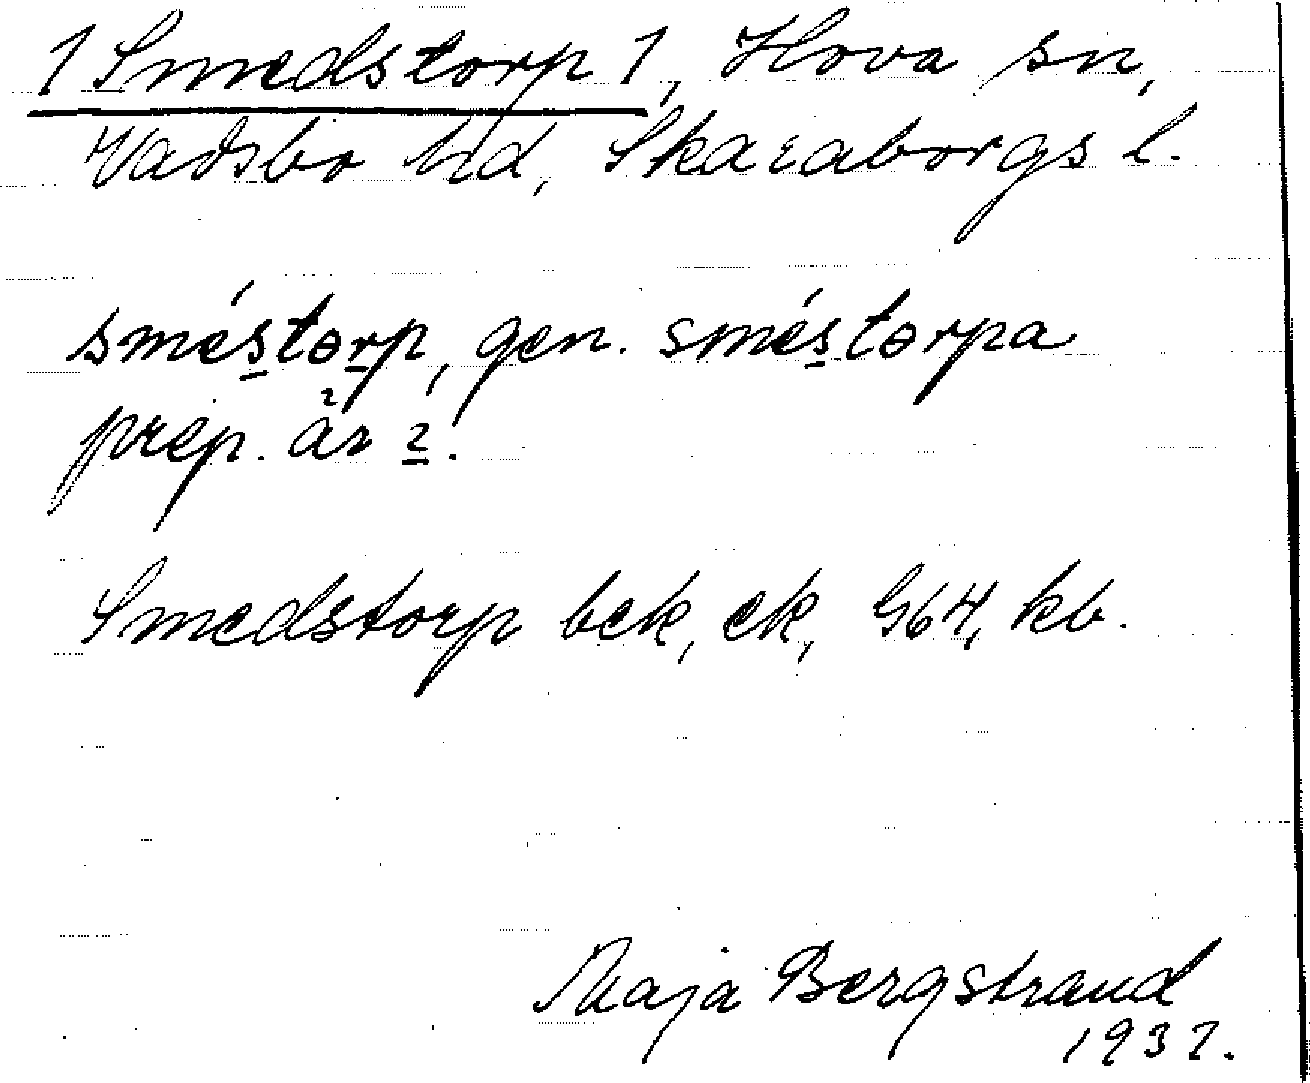 1 Smedstorp 1, Hova sn,
Vadsbo hd, Skaraborgs l.
sméstorp, gen. sméstorpa
prep. är 2.
Smedstorp bek, ek, G64, kb.
Maja Bergstrand
1932.